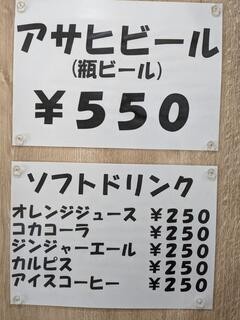 アサヒビール
(瓶ビール)
￥550
ソフトドリンク
オレンジジュース ￥250
コカコーラ ￥250
ジンジャーエール ￥250
カルピス ￥250
アイスコーヒー ￥250